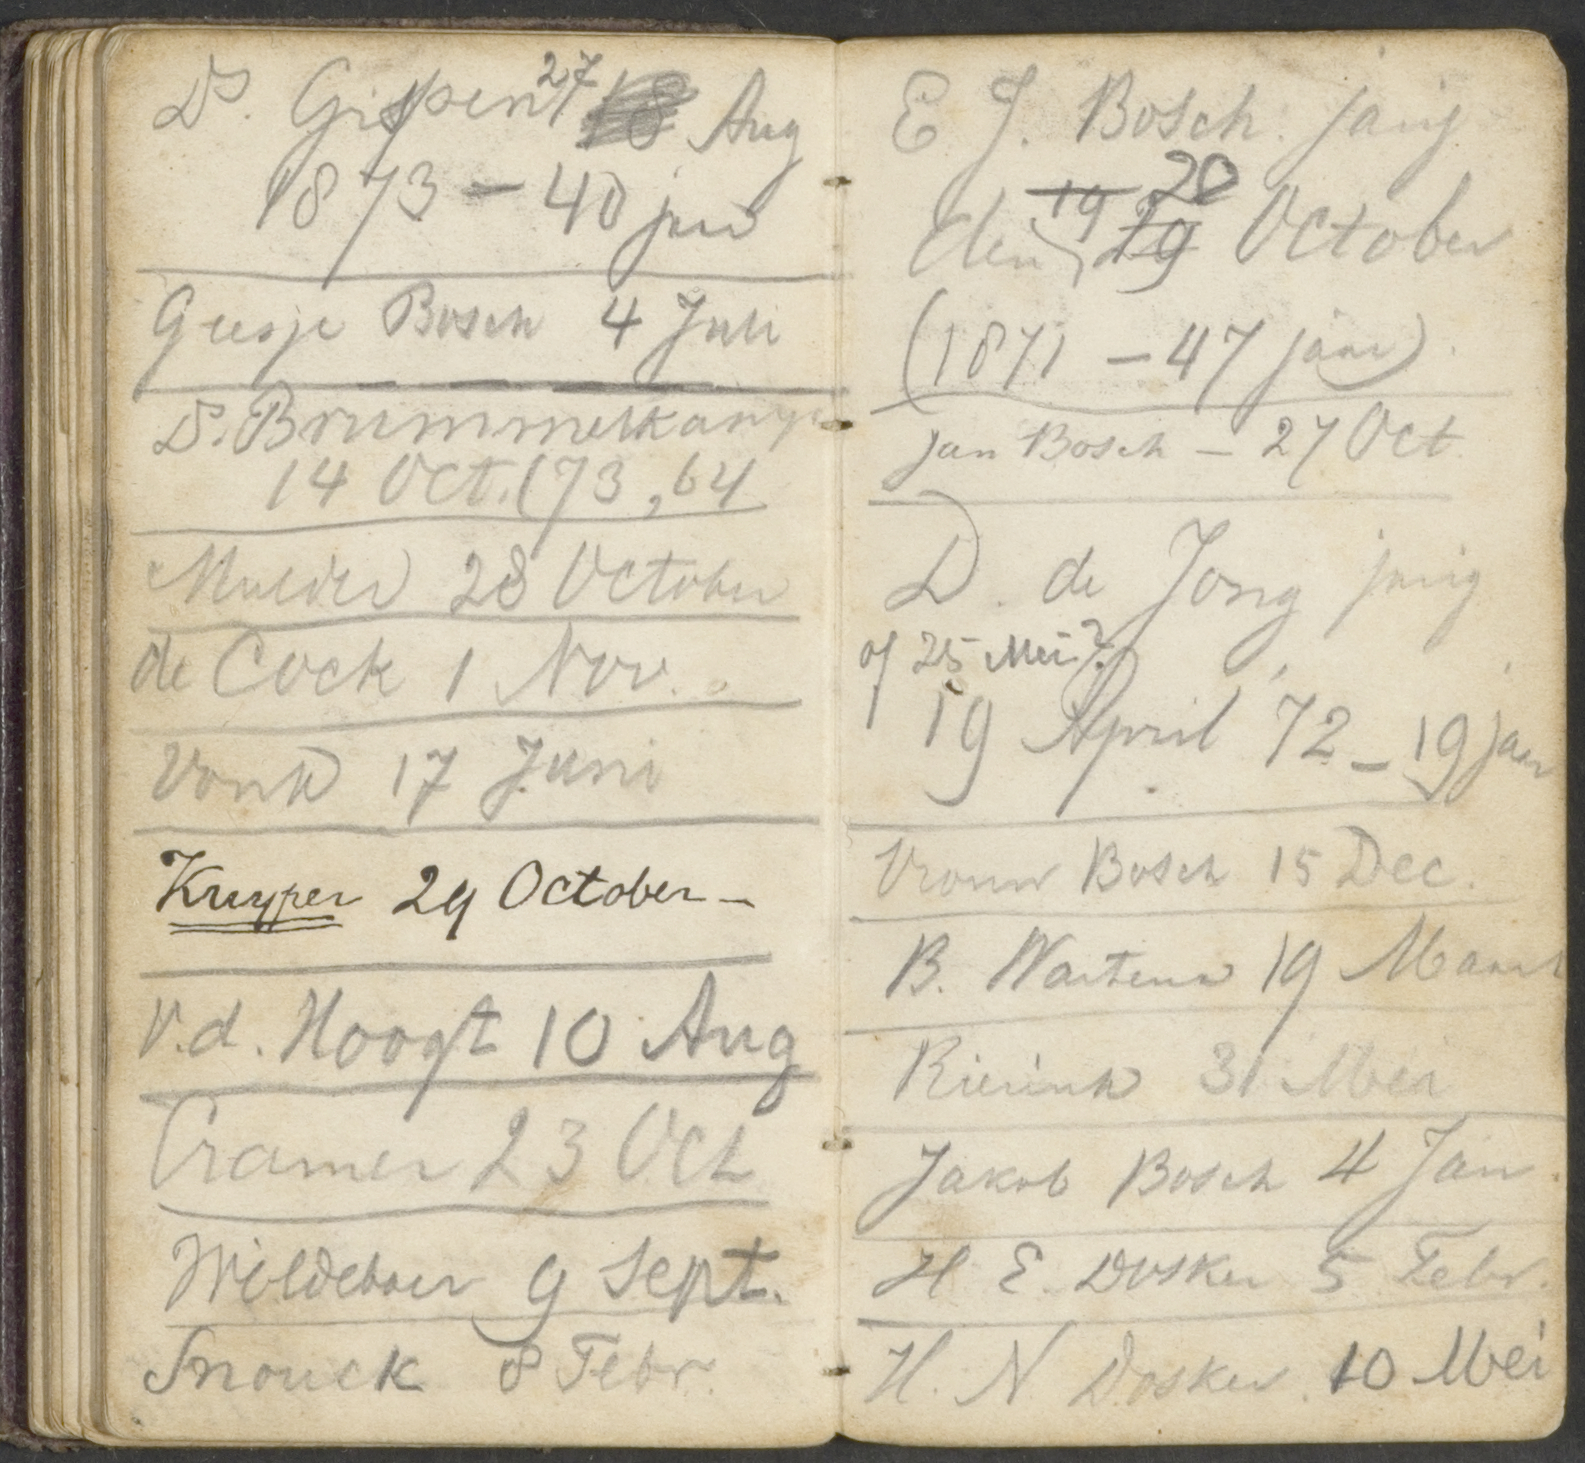 Ds. Gispen 27 Aug
1873 — 40 jaar
Geesje Bosch 4 Juli
Ds. Brummelkamp
14 Oct. (73, 64
Mulder 28 October
de Cock 1 Nov.
Vonk 17 Juni
Kuyper 29 October -
v.d. Hoogt 10 Aug
Cramer 23 Oct
Wildeboer 9 Sept.
Snouck 8 Febr.
E J. Bosch jarig
20
den 19 29 October
(1871 — 47 jaar)
Jan Bosch — 27 Oct
D. de Jong jarig
of 25 Mei?
19 April 72 — 19 jaar
Vrouw Bosch 15 Dec.
B. Wartena 19 Maart
Rierink 31 Mei
Jakob Bosch 4 Jan.
H E. Dosker 5 Febr.
H. N Dosker 10 Mei